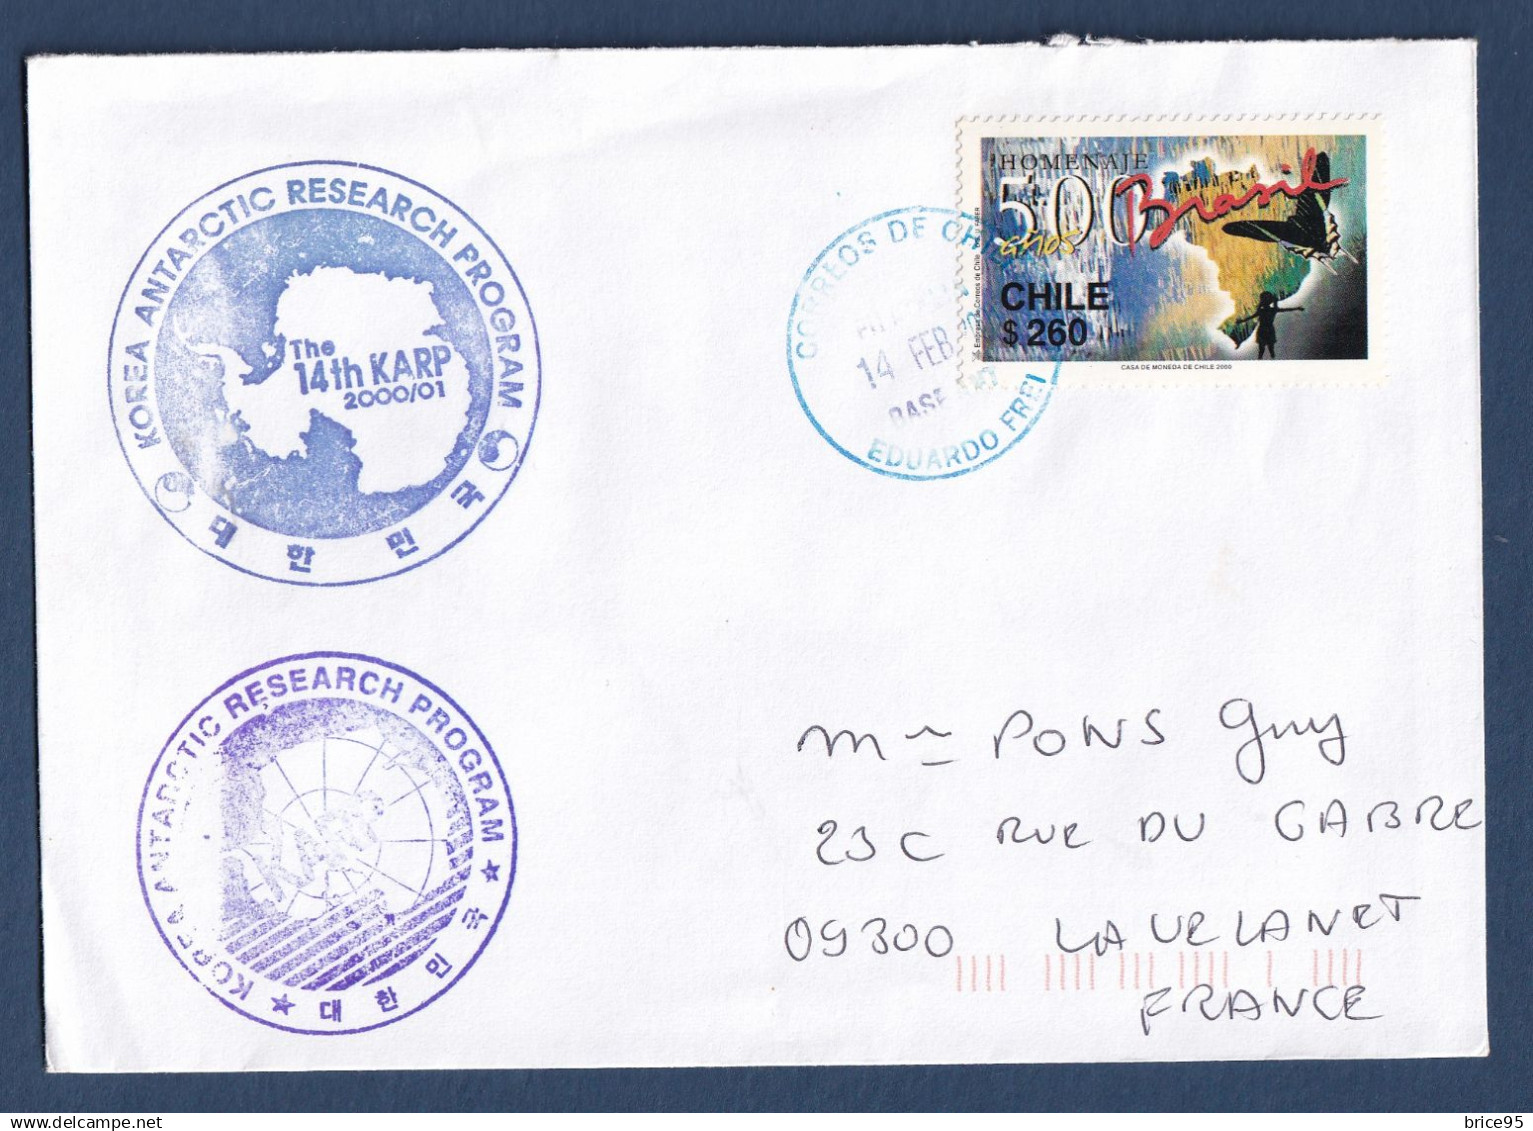 KOREA ANTARCTIC RESEARCH PROGRAM
The
14th KARP
2000/01
대한민국
KOREA ANTARCTIC RESEARCH PROGRAM
대한민국
CORREOS DE CHILE
14 FEB
BASE ANT
EDUARDO FREI
HOMENAJE
500 Brasil
años
CHILE
$ 260
CASA DE MONEDA DE CHILE 2000
Mr PONS Guy
23C RUE DU GABRE
09300 LAVELANET
FRANCE
brice95